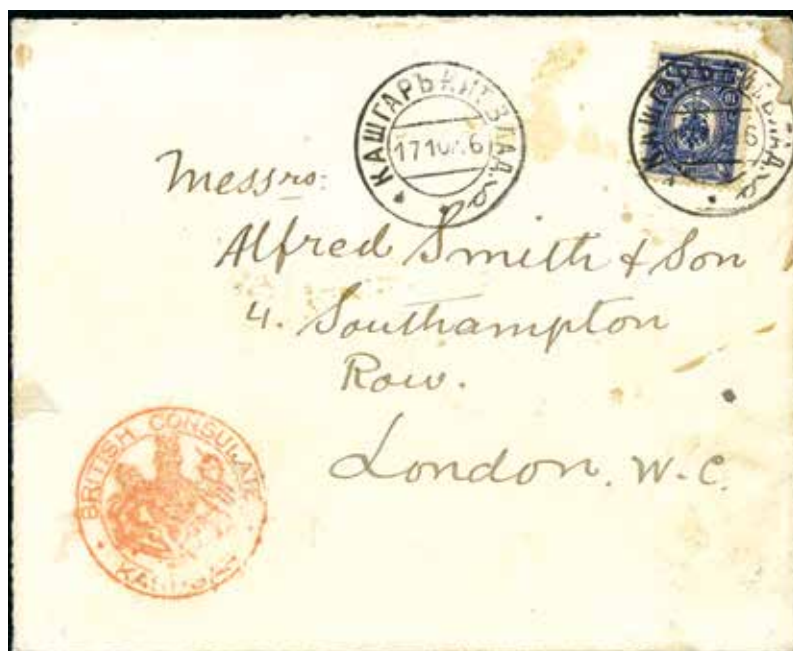 КАШГАРЪ КИТ. ВЛАД.
КАШГАРЪ
6
Messrs:
Alfred Smith & Son
4. Southampton
Row.
London. W.C.
BRITISH CONSULATE